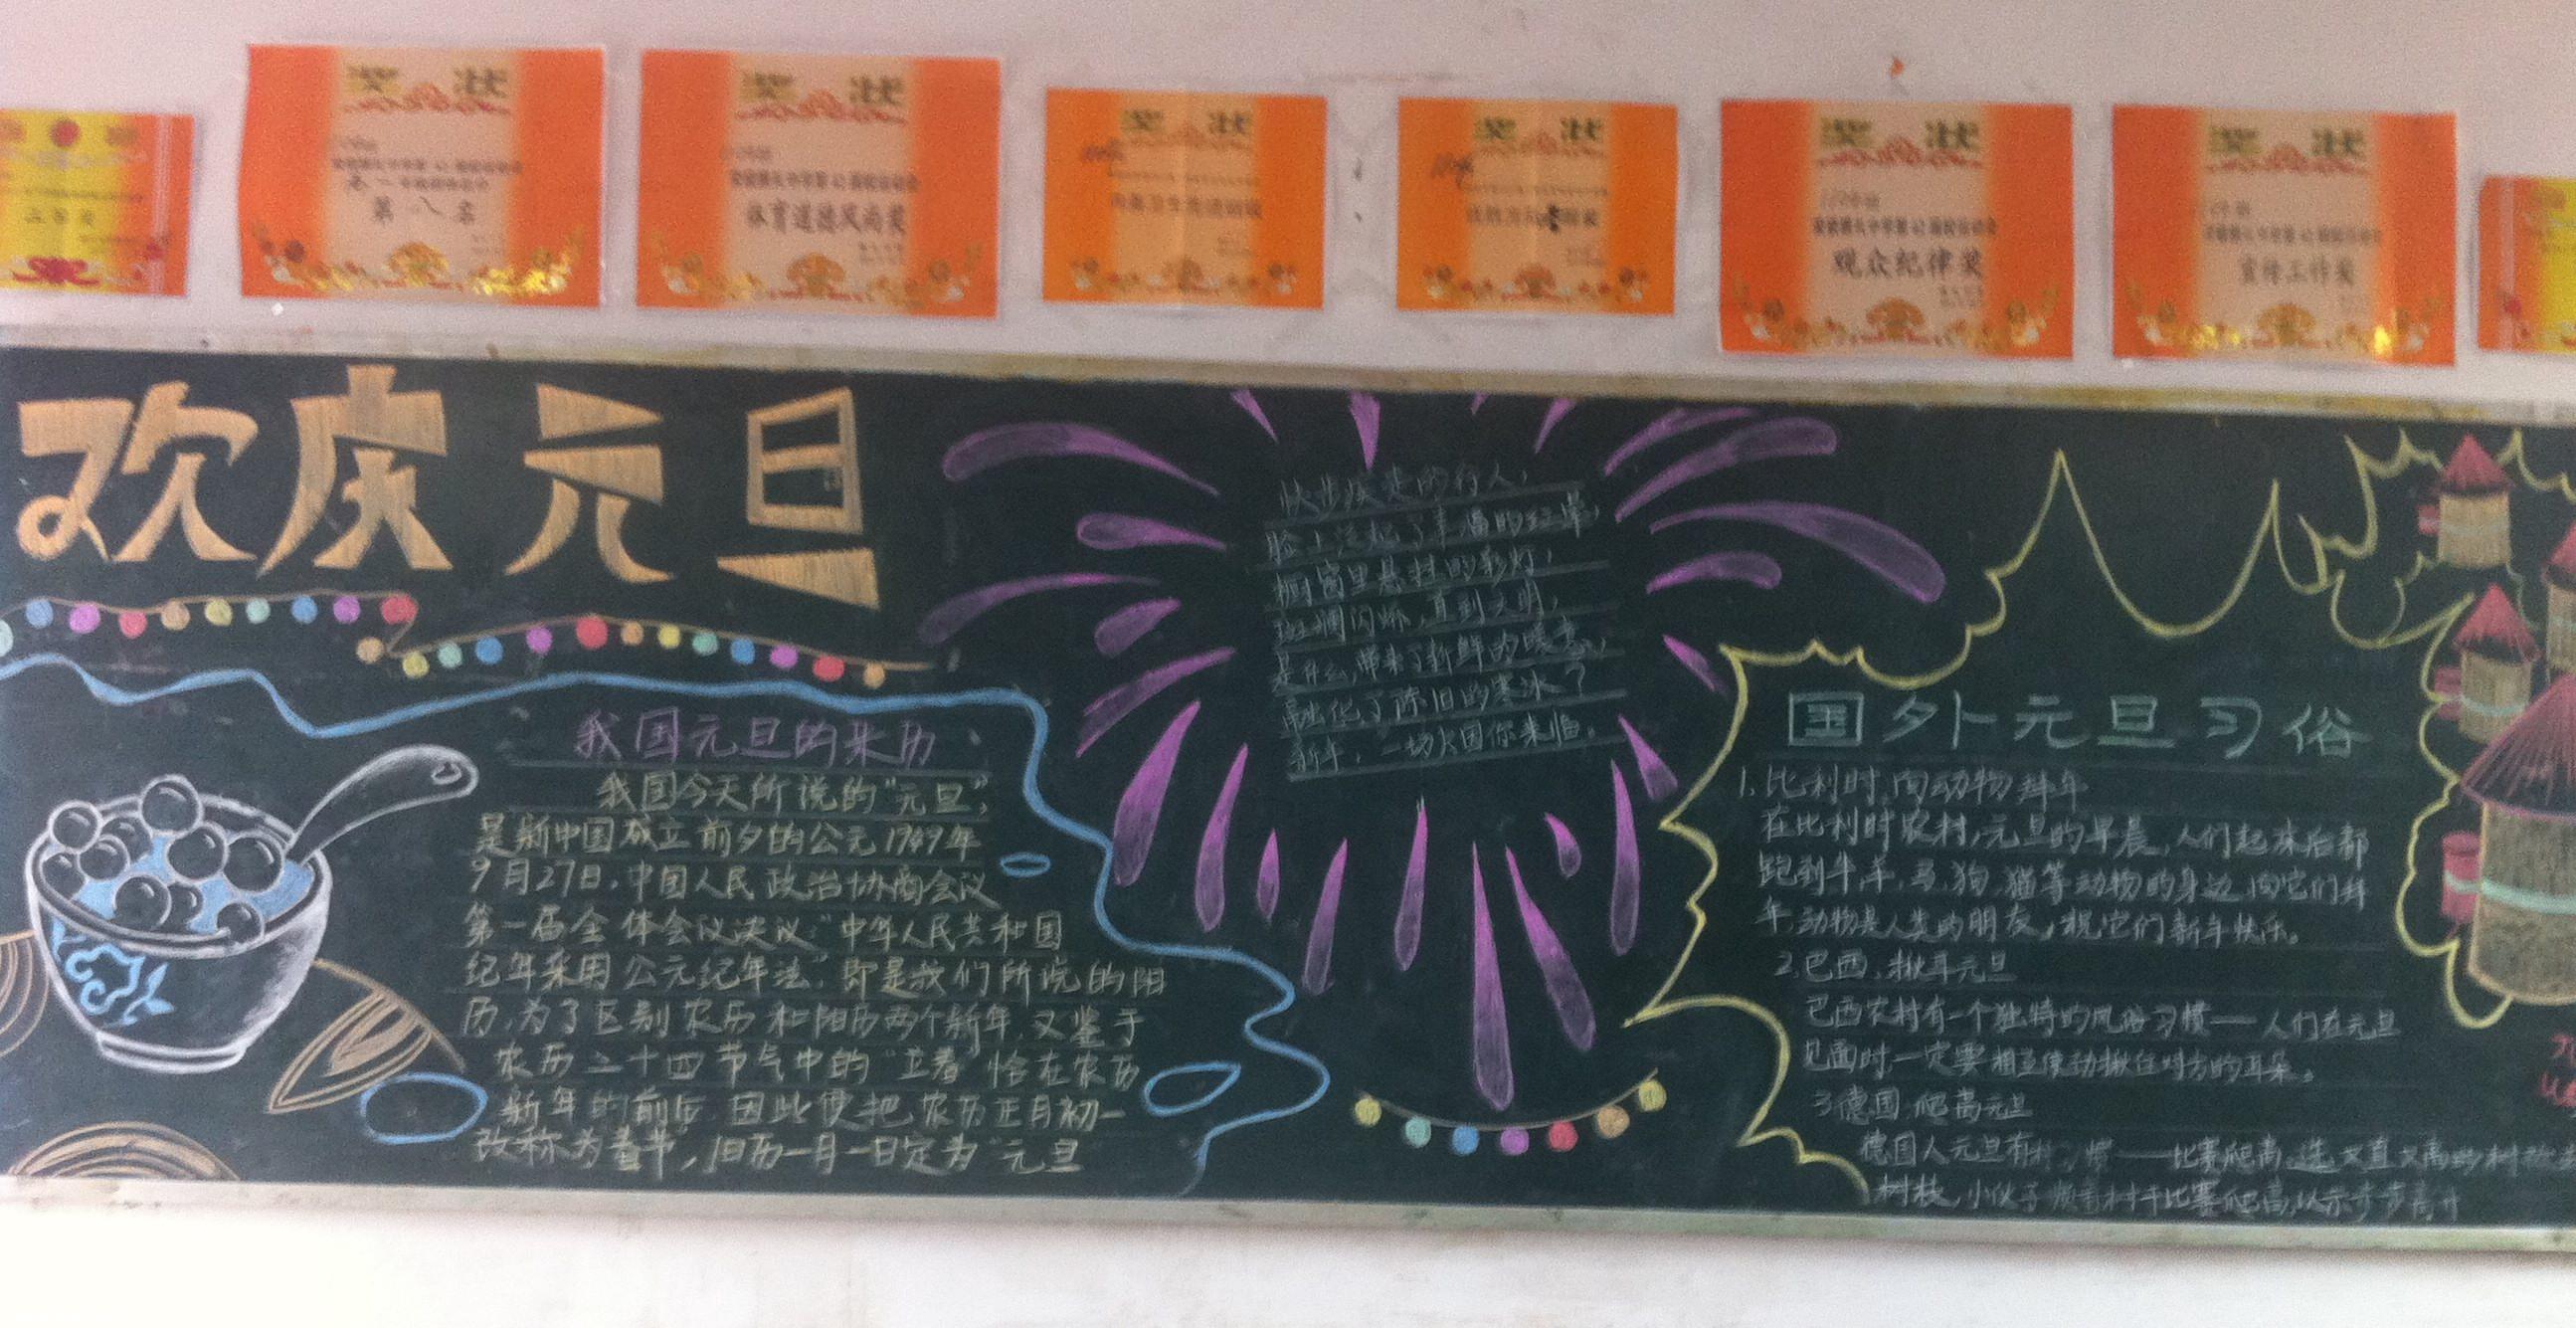 奖 状
第八名
奖 状
体育道德风尚奖
奖 状
奖 状
奖 状
观众纪律奖
奖 状
宣传工作奖
欢庆元旦
我国元旦的来历
我国今天所说的“元旦”,
是新中国成立前夕的公元1949年
9月27日,中国人民政治协商会议
第一届全体会议决议:“中华人民共和国
纪年采用公元纪年法”,即是我们所说的阳
历,为了区别农历和阳历两个新年,又鉴于
农历二十四节气中的“立春”恰在农历
新年的前后,因此便把农历正月初一
改称为春节,旧历一月一日定为“元旦
的行人,
脸上泛起了幸福的红晕,
橱窗里悬挂的彩灯,
斑斓闪烁,直到天明,
是什么,带来了新鲜的暖意,
融化了陈旧的寒冰?
新年,一切因你来临。
国外元旦习俗
1.比利时:向动物拜年
在比利时农村,元旦的早晨,人们起床后都
跑到牛,羊,马,狗,猫等动物的身边,向它们拜
年,动物是人类的朋友,祝它们新年快乐。
2.巴西:揪耳元旦
巴西农村有一个独特的风俗习惯——人们在元旦
见面时,一定要相互使劲揪住对方的耳朵。
3德国:爬高元旦
德国人元旦有 习惯——比赛爬高,选又直又高的树
树枝,小伙子顺着树干比赛爬高,以示步步高升